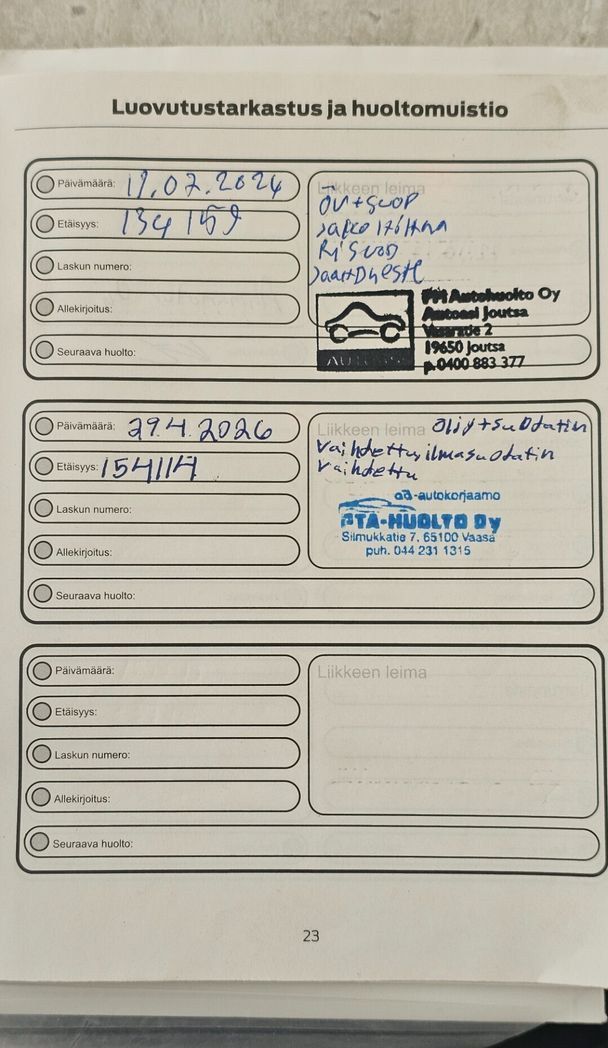 Luovutustarkastus ja huoltomuistio
Päivämäärä: 11.07.2024
Etäisyys: 134 159
Laskun numero:
Allekirjoitus:
Seuraava huolto:
Liikkeen leima
Öv + suop
RiSuoD
PM Autohuolto Oy
Autoasi Joutsa
Vasaratie 2
19650 Joutsa
p.0400 883 377
Päivämäärä: 29.4.2026
Etäisyys: 154114
Laskun numero:
Allekirjoitus:
Seuraava huolto:
Liikkeen leima öljy+suodatin
vaihdettu, ilmasuodatin
vaihdettu
ad-autokorjaamo
PTA-HUOLTO Oy
Silmukkatie 7, 65100 Vaasa
puh. 044 231 1315
Päivämäärä:
Etäisyys:
Laskun numero:
Allekirjoitus:
Seuraava huolto:
Liikkeen leima
23